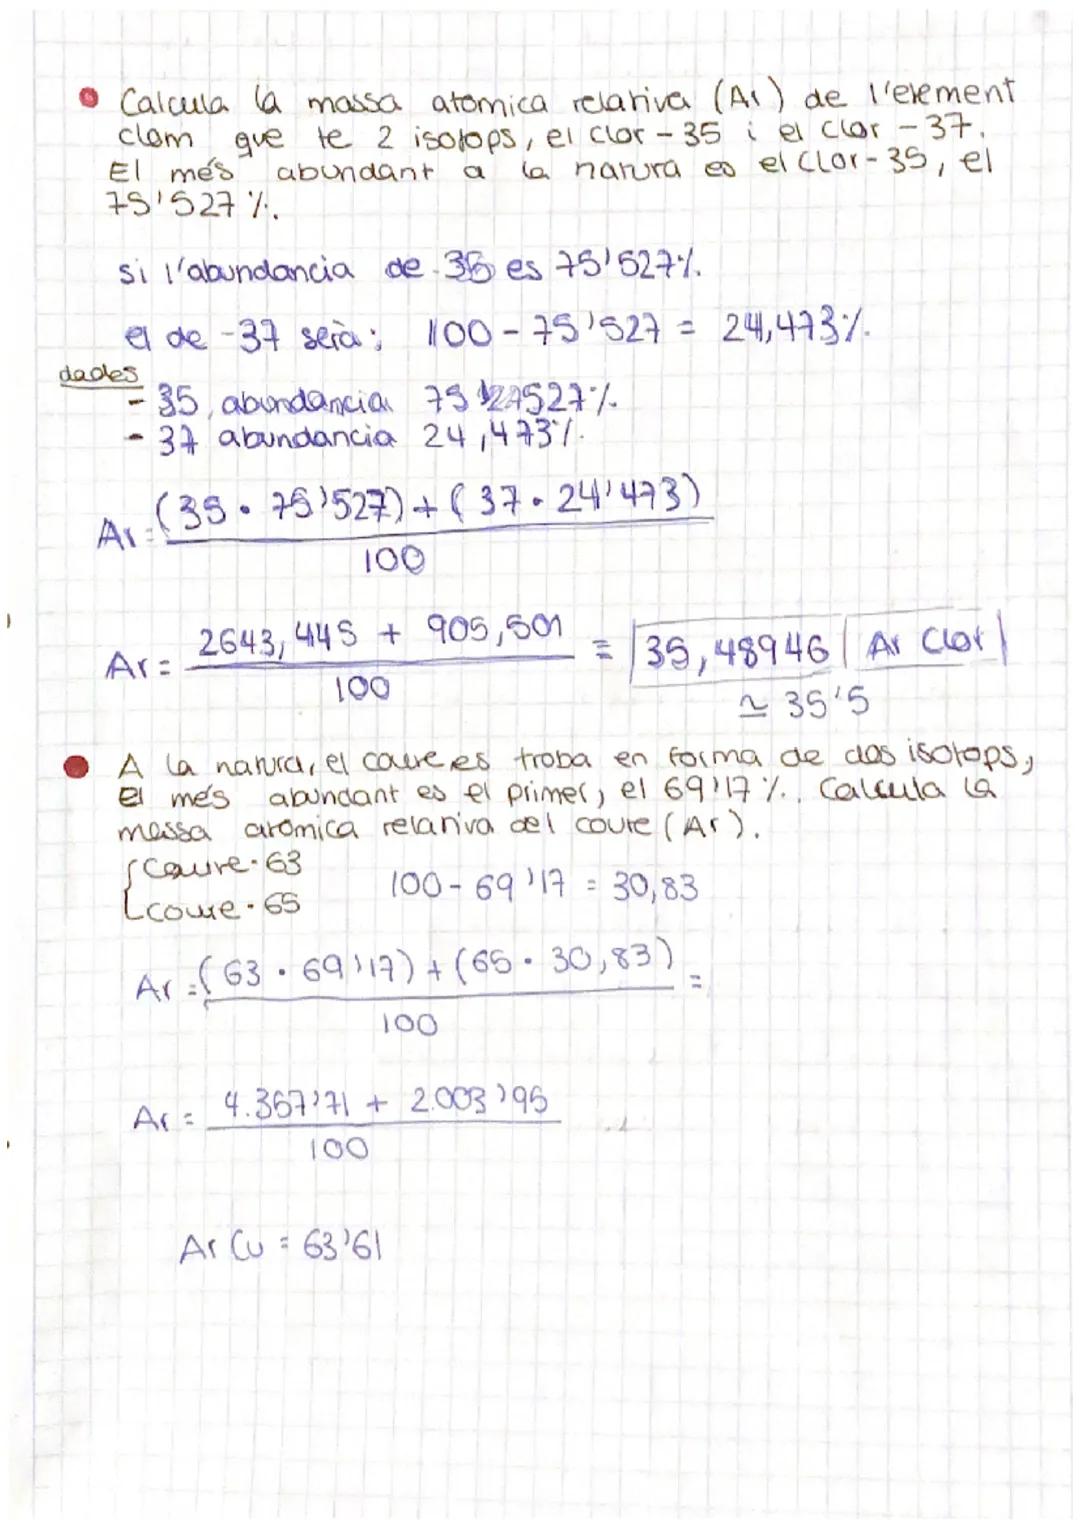 Calcula la massa atomica relativa (Ar) de l'element
clom que te 2 isotops, el clor-35 i el clor-37.
El més abundant a la natura es el Clor-35, el
75'527%.
si l'abundancia de -35 es 75'527%.
el de -37 serà: 100 - 75'527 = 24,473%.
dades
- 35, abundancia 75 527%.
- 37 abundancia 24,473%.
Ar = (35 · 75'527) + (37 · 24'473)
100
Ar = 2643,445 + 905,501 = 35,48946 Ar Clor
100
≃ 35'5
A la natura, el coure es troba en forma de dos isotops,
El més abundant es el primer, el 69'17%. Calcula la
massa atòmica relativa del coure (Ar).
{Coure-63
coure-65
100 - 69'17 = 30,83
Ar = (63 · 69'17) + (65 · 30,83) =
100
Ar = 4.357'71 + 2.003'95
100
Ar Cu = 63'61